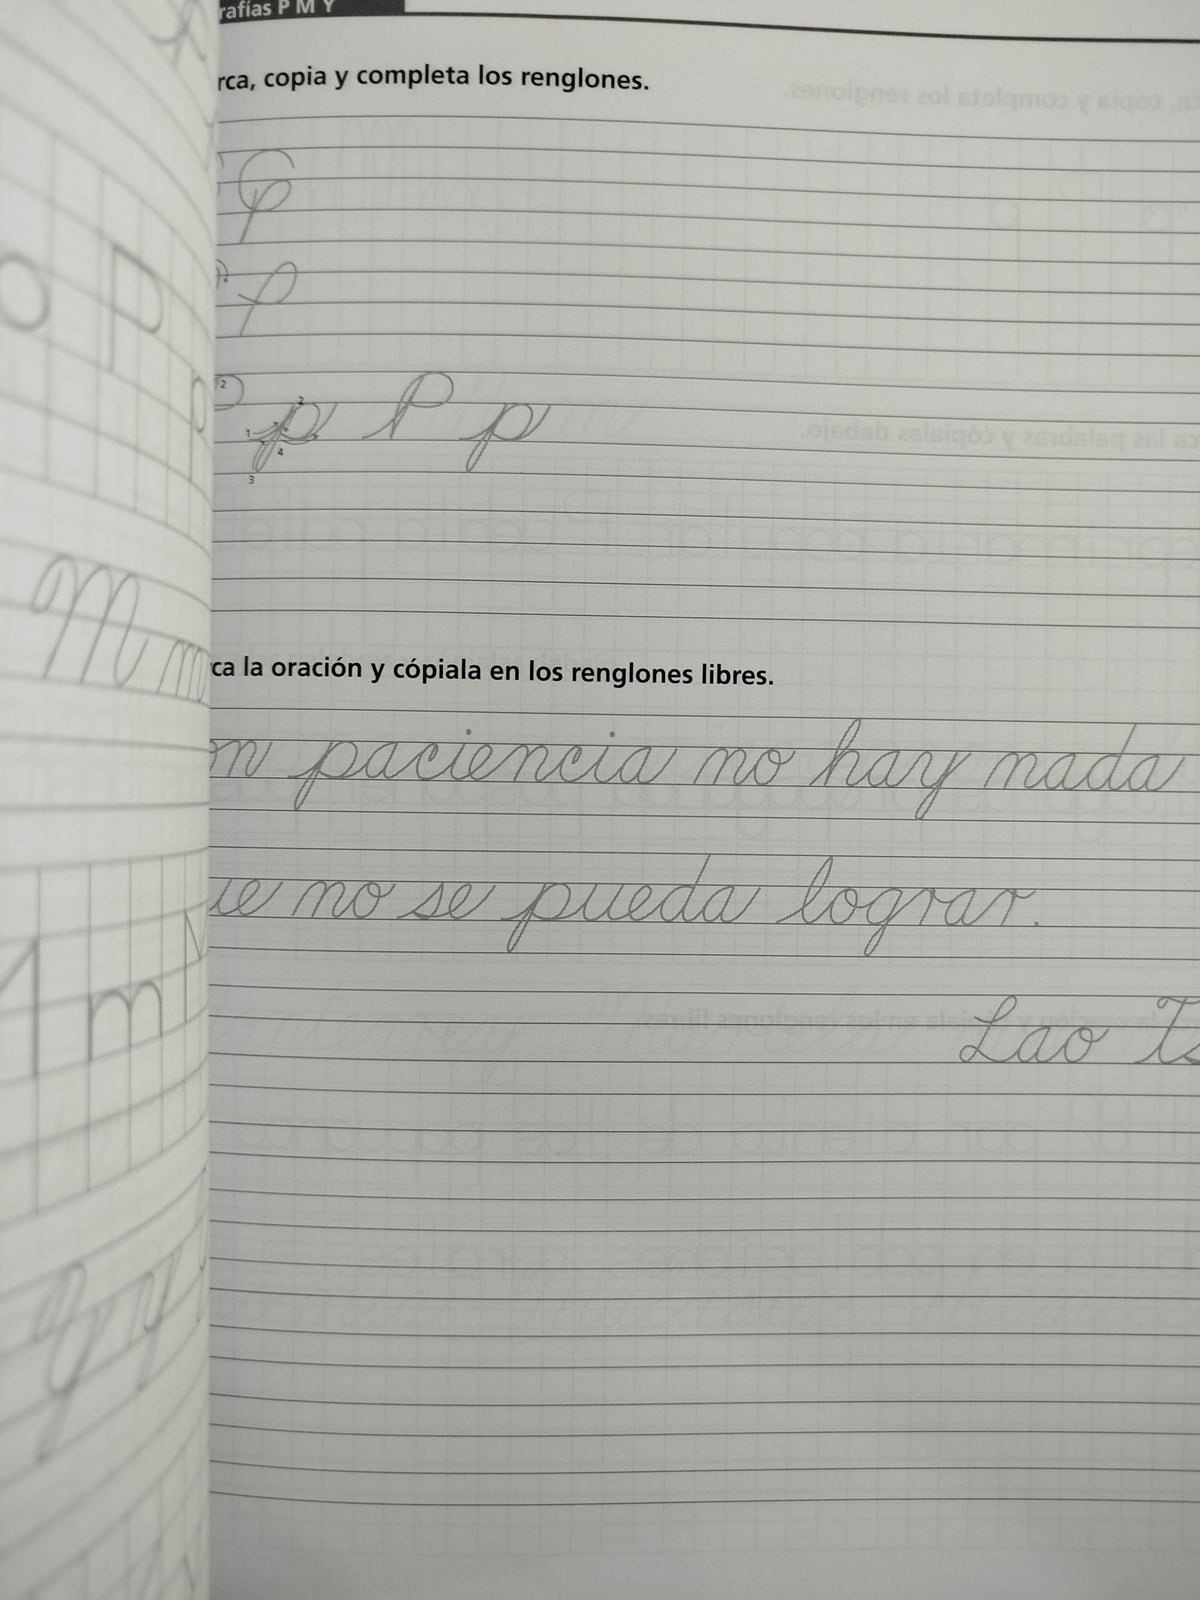 rafías P M Y
rca, copia y completa los renglones.
P p P p
ca la oración y cópiala en los renglones libres.
on paciencia no hay nada
ue no se pueda lograr.
Lao Ts
P
p
M m
m
y y